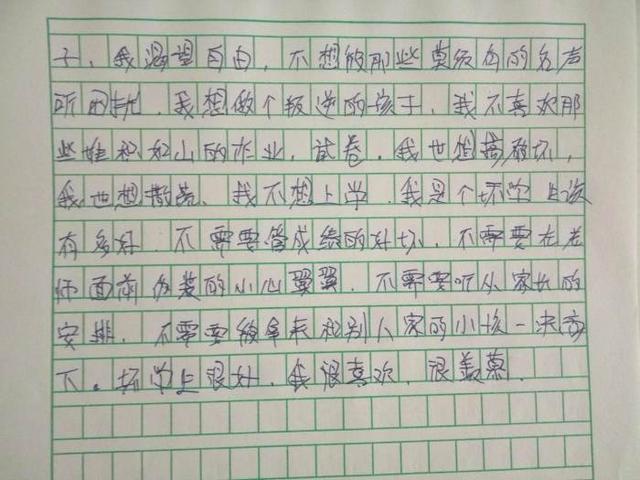 子，我渴望自由，不想被那些莫须有的名声
所困扰，我想做个叛逆的孩子，我不喜欢那
些堆积如山的作业，试卷，我也想搞破坏，
我也想撒野，我不想上学，我是个坏学生该
有多好，不需要管成绩的好坏，不需要在老
师面前伪装的小心翼翼，不需要听从家长的
安排，不需要被拿来和别人家的小孩一决高
下。坏学生很好，我很喜欢，很羡慕，